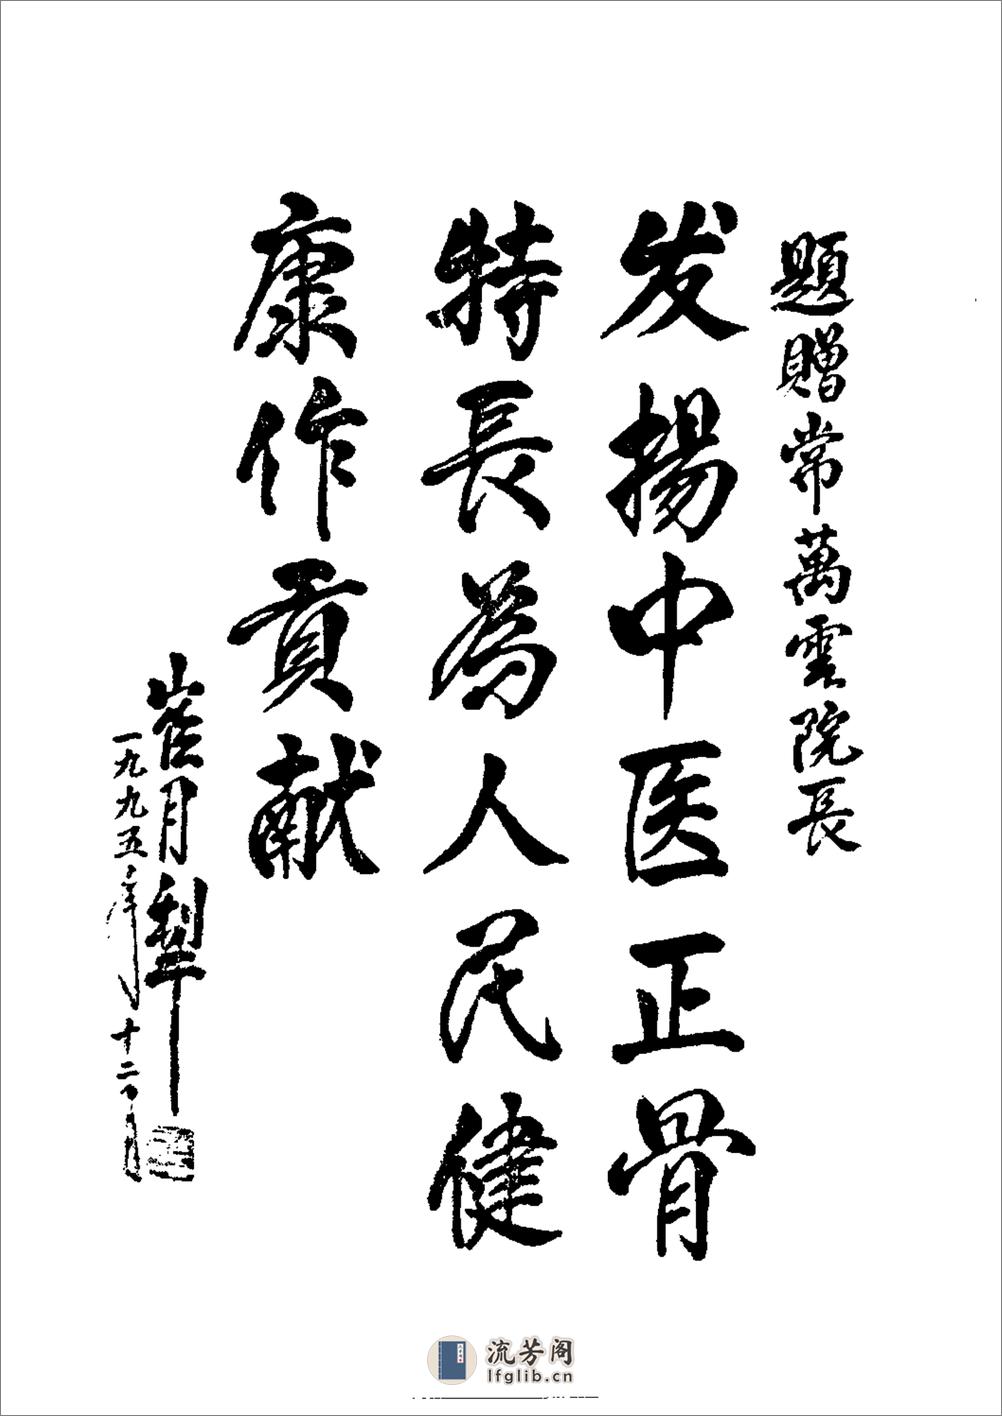 題贈常萬雲院長
发揚中医正骨
特長為人民健
康作貢献
崔月犁
一九九五年十二月
流芳阁
lfglib.cn